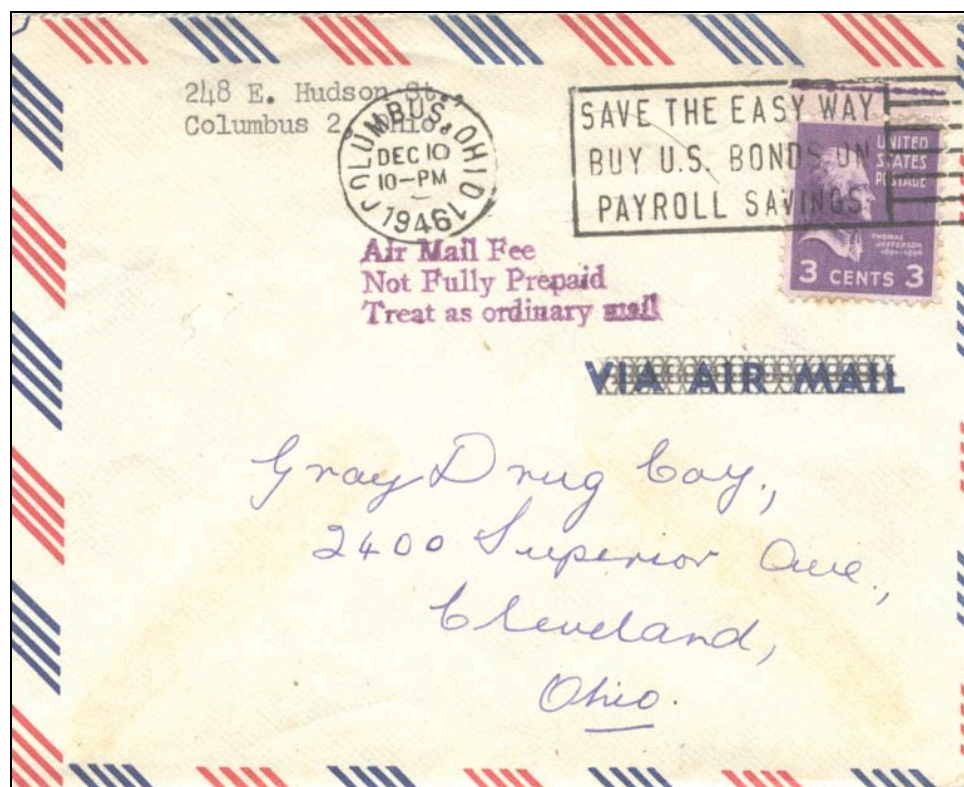 248 E. Hudson St.,
Columbus 2, Ohio
COLUMBUS, OHIO
DEC 10
10-PM
1946
1
SAVE THE EASY WAY
BUY U.S. BONDS ON
PAYROLL SAVINGS
UNITED
STATES
POSTAGE
THOMAS
JEFFERSON
3 CENTS 3
Air Mail Fee
Not Fully Prepaid
Treat as ordinary mail
VIA AIR MAIL
Gray Drug Coy.,
2400 Superior Ave.,
Cleveland,
Ohio.